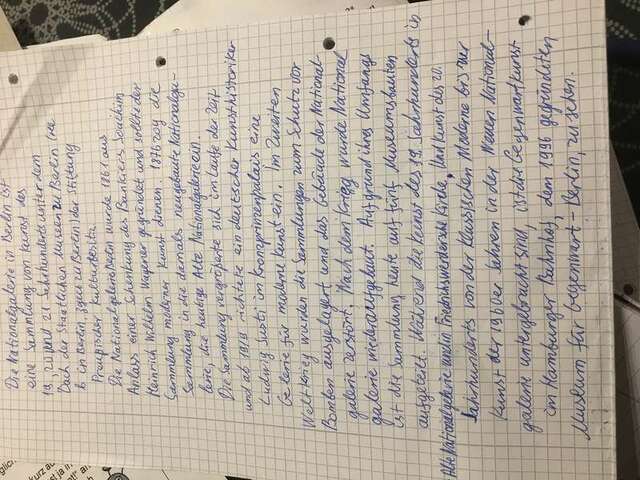 Die Nationalgalerie in Berlin ist
eine Sammlung von Kunst des
19., 20. und 21. Jahrhunderts unter dem
Dach der Staatlichen Museen zu Berlin
in Berlin der Stiftung
Preußischer Kulturbesitz.
Die Nationalgalerie Berlin wurde 1861 aus
Anlass einer Schenkung des Bankiers Joachim
Heinrich Wilhelm Wagener gegründet und sollte der
Sammlung moderner Kunst dienen. 1876 zog die
Sammlung in die damals neugebaute Nationalga-
lerie, die heutige Alte Nationalgalerie ein.
Die Sammlung vergrößerte sich im Laufe der Zeit
und ab 1919 richtete ein deutscher Kunsthistoriker
Ludwig Justi im Kronprinzenpalais eine
Galerie für moderne Kunst ein. Im Zweiten
Weltkrieg wurden die Sammlungen zum Schutz vor
Bomben ausgelagert und das Gebäude der National-
galerie zerstört. Nach dem Krieg wurde National
galerie wiederaufgebaut. Aufgrund ihres Umfangs
ist die Sammlung heute auf fünf Museumsbauten
aufgeteilt. Während die Kunst des 19. Jahrhunderts in
Alte Nationalgalerie und in Friedrichswerdersche Kirche, und Kunst des 20.
Jahrhunderts von der Klassischen Moderne bis zur
Kunst der 1960er Jahren in der Neuen National-
galerie untergebracht sind, ist die Gegenwartkunst
im Hamburger Bahnhof, dem 1996 gegründeten
Museum für Gegenwart - Berlin, zu sehen.
kurz